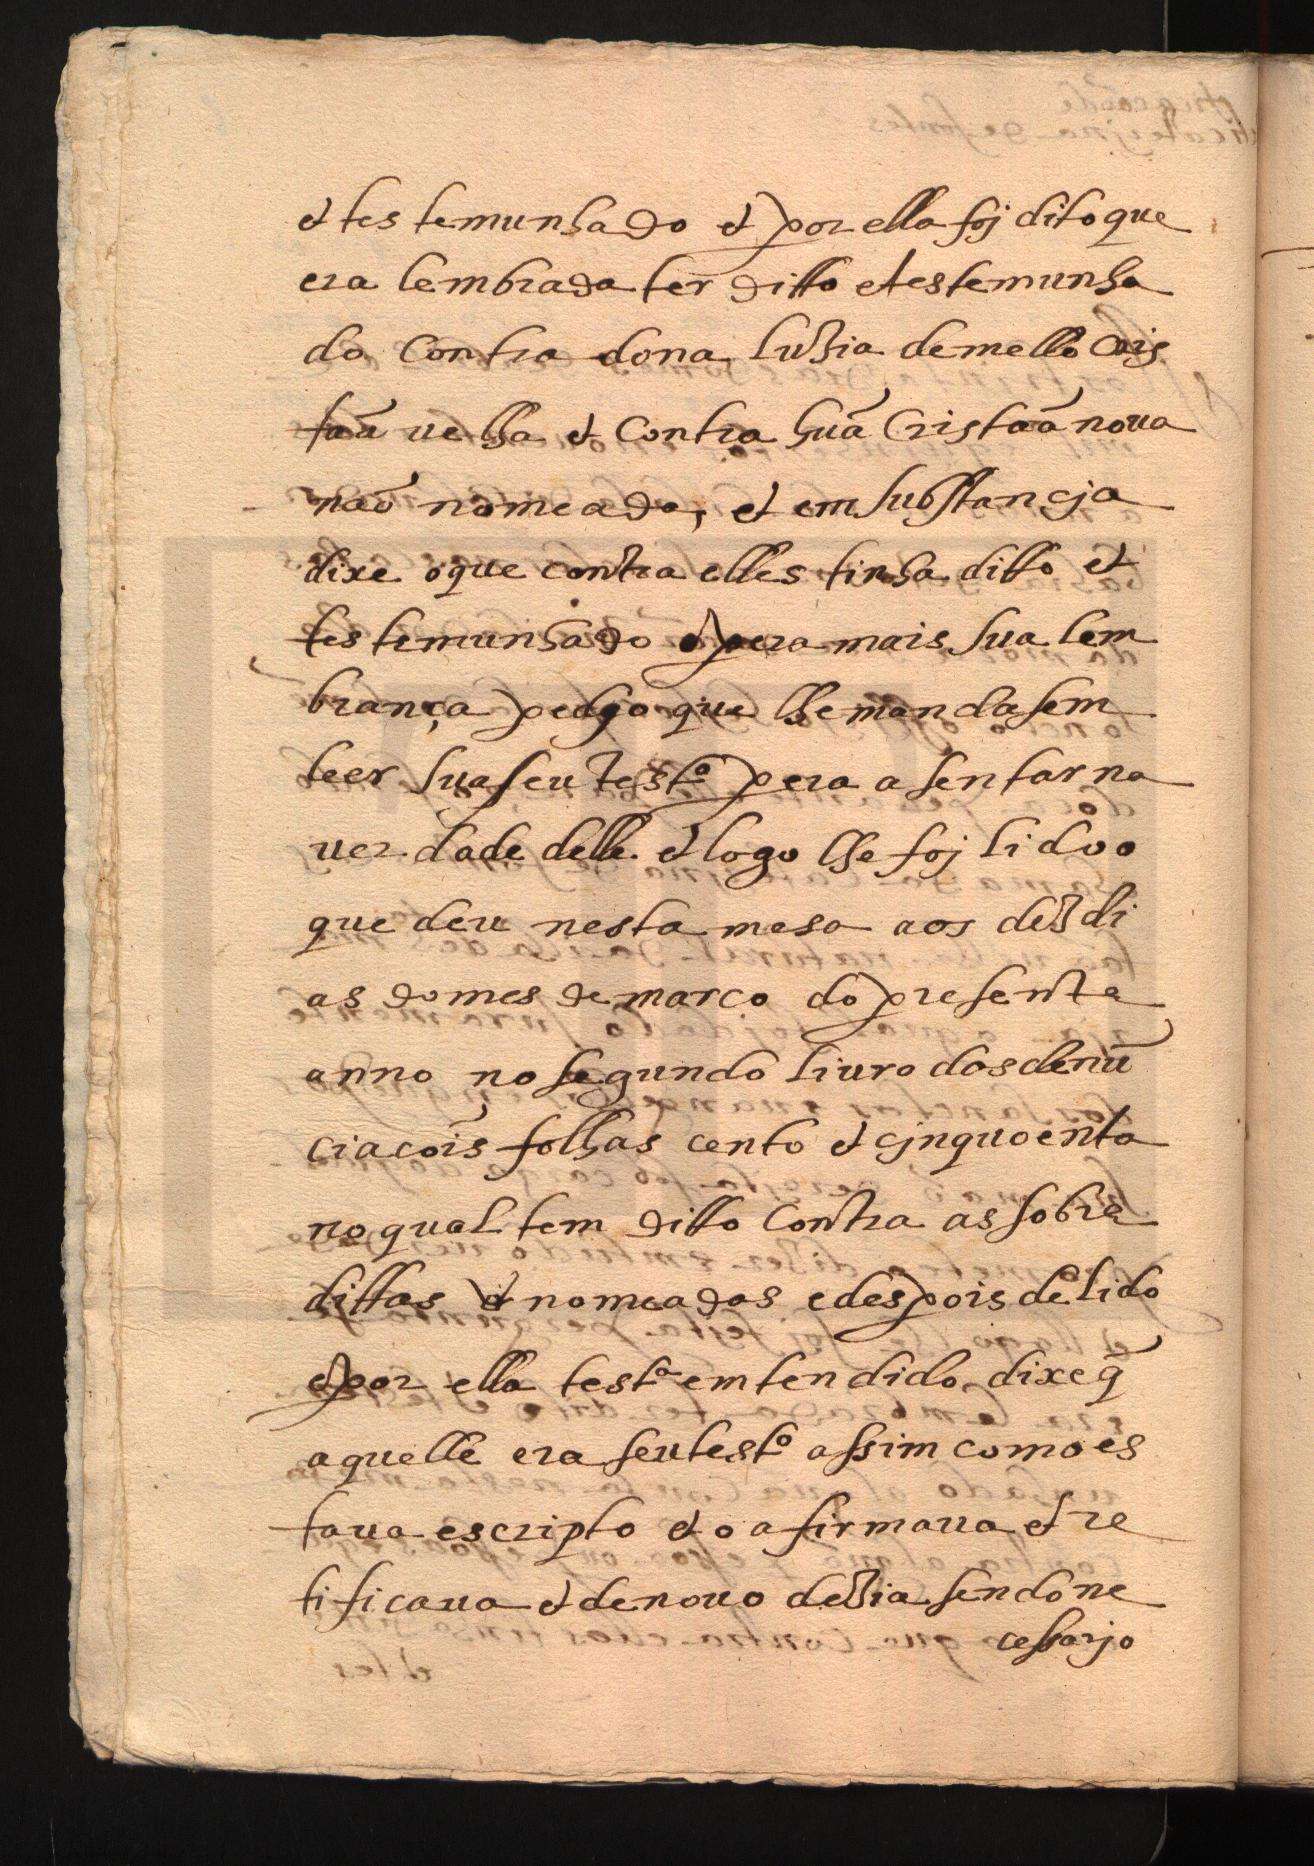 et testemunhado et por ella foj dito que
era lembrada ter ditto et testemunha
do contra dona luzia de mello Cris
taã uelha et contra huã Cristaã noua
não nomeada, et em substançja
dixe o que contra elles tinha ditto et
testemunhado et pera mais sua lem
brança pedjo que lhe mandasem
leer seu testo pera asentar na
uerdade delle. et logo lhe foj lido o
que deu nesta mesa aos dez di
as do mes de março do presente
anno no segundo liuro das denũ
ciacoĩs folhas cento et cjnquoenta
no qual tem ditto contra as sobre
dittas et nomeadas e despois de lido
et por ella testa emtendido dixe q̃
aquelle era seu testo assim como es
taua escripto et o afirmaua et re
tificaua et de nouo dezia sendo ne
cessarjo